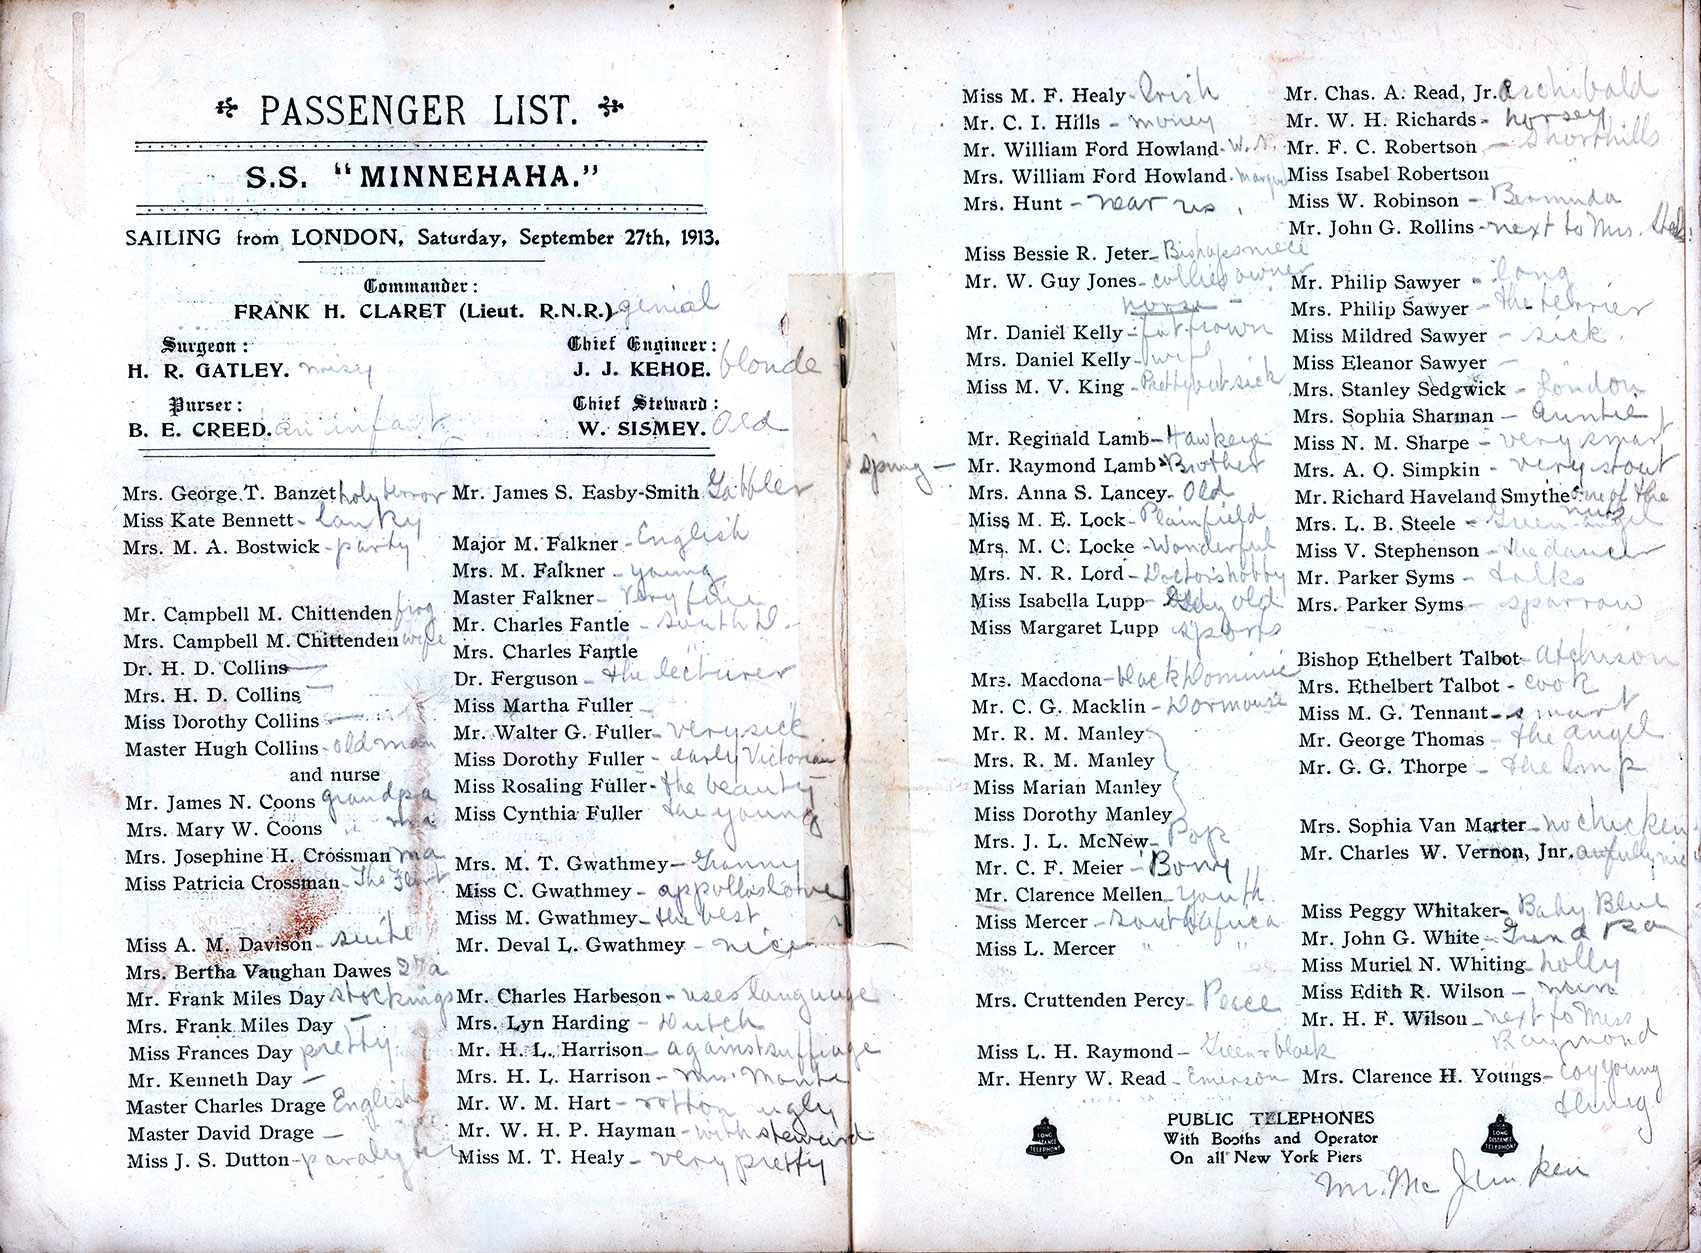 PASSENGER LIST.
S.S. "MINNEHAHA."
SAILING from LONDON, Saturday, September 27th, 1913.
Commander:
FRANK H. CLARET (Lieut. R.N.R.) genial
Surgeon:
H. R. GATLEY. noisy
Chief Engineer:
J. J. KEHOE. blonde
Purser:
B. E. CREED. an infant
Chief Steward:
W. SISMEY. Old
Mrs. George T. Banzet holy terror
Miss Kate Bennett - lanky
Mrs. M. A. Bostwick - party
Mr. Campbell M. Chittenden frog
Mrs. Campbell M. Chittenden wife
Dr. H. D. Collins
Mrs. H. D. Collins
Miss Dorothy Collins
Master Hugh Collins - old man
and nurse
Mr. James N. Coons grandpa
Mrs. Mary W. Coons " ma
Mrs. Josephine H. Crossman ma
Miss Patricia Crossman - The
Miss A. M. Davison - suite
Mrs. Bertha Vaughan Dawes 27a
Mr. Frank Miles Day stockings
Mrs. Frank Miles Day -
Miss Frances Day pretty
Mr. Kenneth Day -
Master Charles Drage English
Master David Drage -
Miss J. S. Dutton - paralytic
Mr. James S. Easby-Smith Gabbler
Major M. Falkner - English
Mrs. M. Falkner - young
Master Falkner - Very fine
Mr. Charles Fantle - South D. -
Mrs. Charles Fantle
Dr. Ferguson - the lecturer
Miss Martha Fuller -
Mr. Walter G. Fuller - very sick
Miss Dorothy Fuller - early Victorian
Miss Rosaling Fuller - the beauty
Miss Cynthia Fuller the young
Mrs. M. T. Gwathmey - Granny
Miss C. Gwathmey -
Miss M. Gwathmey - the best
Mr. Deval L. Gwathmey - nice
Mr. Charles Harbeson - uses language
Mrs. Lyn Harding - Dutch
Mr. H. L. Harrison - against suffrage
Mrs. H. L. Harrison - Mrs.
Mr. W. M. Hart - rotton ugly
Mr. W. H. P. Hayman - with steward
Miss M. T. Healy - very pretty
Miss M. F. Healy - Irish
Mr. C. I. Hills - money
Mr. William Ford Howland - W.
Mrs. William Ford Howland -
Mrs. Hunt - near us.
Miss Bessie R. Jeter - Bishops niece
Mr. W. Guy Jones - collies owner
nurse -
Mr. Daniel Kelly - fat frown
Mrs. Daniel Kelly - wife
Miss M. V. King - Pretty but sick
Mr. Reginald Lamb - Hawkeye
spring - Mr. Raymond Lamb Brother
Mrs. Anna S. Lancey - Old
Miss M. E. Lock - Plainfield
Mrs. M. C. Locke - Wonderful
Mrs. N. R. Lord - Doctor's hobby
Miss Isabella Lupp - old
Miss Margaret Lupp sports
Mrs. Macdona - black Dominic
Mr. C. G. Macklin - Dormouse
Mr. R. M. Manley
Mrs. R. M. Manley
Miss Marian Manley
Miss Dorothy Manley
Mrs. J. L. McNew - Pop
Mr. C. F. Meier - Bony
Mr. Clarence Mellen - youth
Miss Mercer - South Africa
Miss L. Mercer " "
Mrs. Cruttenden Percy - Peace
Miss L. H. Raymond - Green & black
Mr. Henry W. Read - Emerson
Mr. Chas. A. Read, Jr. Archibald
Mr. W. H. Richards - horsey
Mr. F. C. Robertson - Shorthills
Miss Isabel Robertson
Miss W. Robinson - Bermuda
Mr. John G. Rollins - next to Mrs.
Mr. Philip Sawyer - long
Mrs. Philip Sawyer - the terrier
Miss Mildred Sawyer - sick
Miss Eleanor Sawyer -
Mrs. Stanley Sedgwick - London
Mrs. Sophia Sharman - Auntie
Miss N. M. Sharpe - very smart
Mrs. A. O. Simpkin - very stout
Mr. Richard Haveland Smythe one of the
Mrs. L. B. Steele - Green angel
Miss V. Stephenson - the dancer
Mr. Parker Syms - talks
Mrs. Parker Syms - sparrow
Bishop Ethelbert Talbot - atchison
Mrs. Ethelbert Talbot - cook
Miss M. G. Tennant - smart
Mr. George Thomas - the angel
Mr. G. G. Thorpe - the Imp
Mrs. Sophia Van Marter - no chicken
Mr. Charles W. Vernon, Jnr. awfully nice
Miss Peggy Whitaker - Baby Blue
Mr. John G. White - Grandpa
Miss Muriel N. Whiting - holly
Miss Edith R. Wilson -
Mr. H. F. Wilson - next to Miss
Raymond
Mrs. Clarence H. Youngs - coy young
thing
PUBLIC TELEPHONES
With Booths and Operator
On all New York Piers
LONG DISTANCE TELEPHONE
LONG DISTANCE TELEPHONE
Mr. Mc Junken